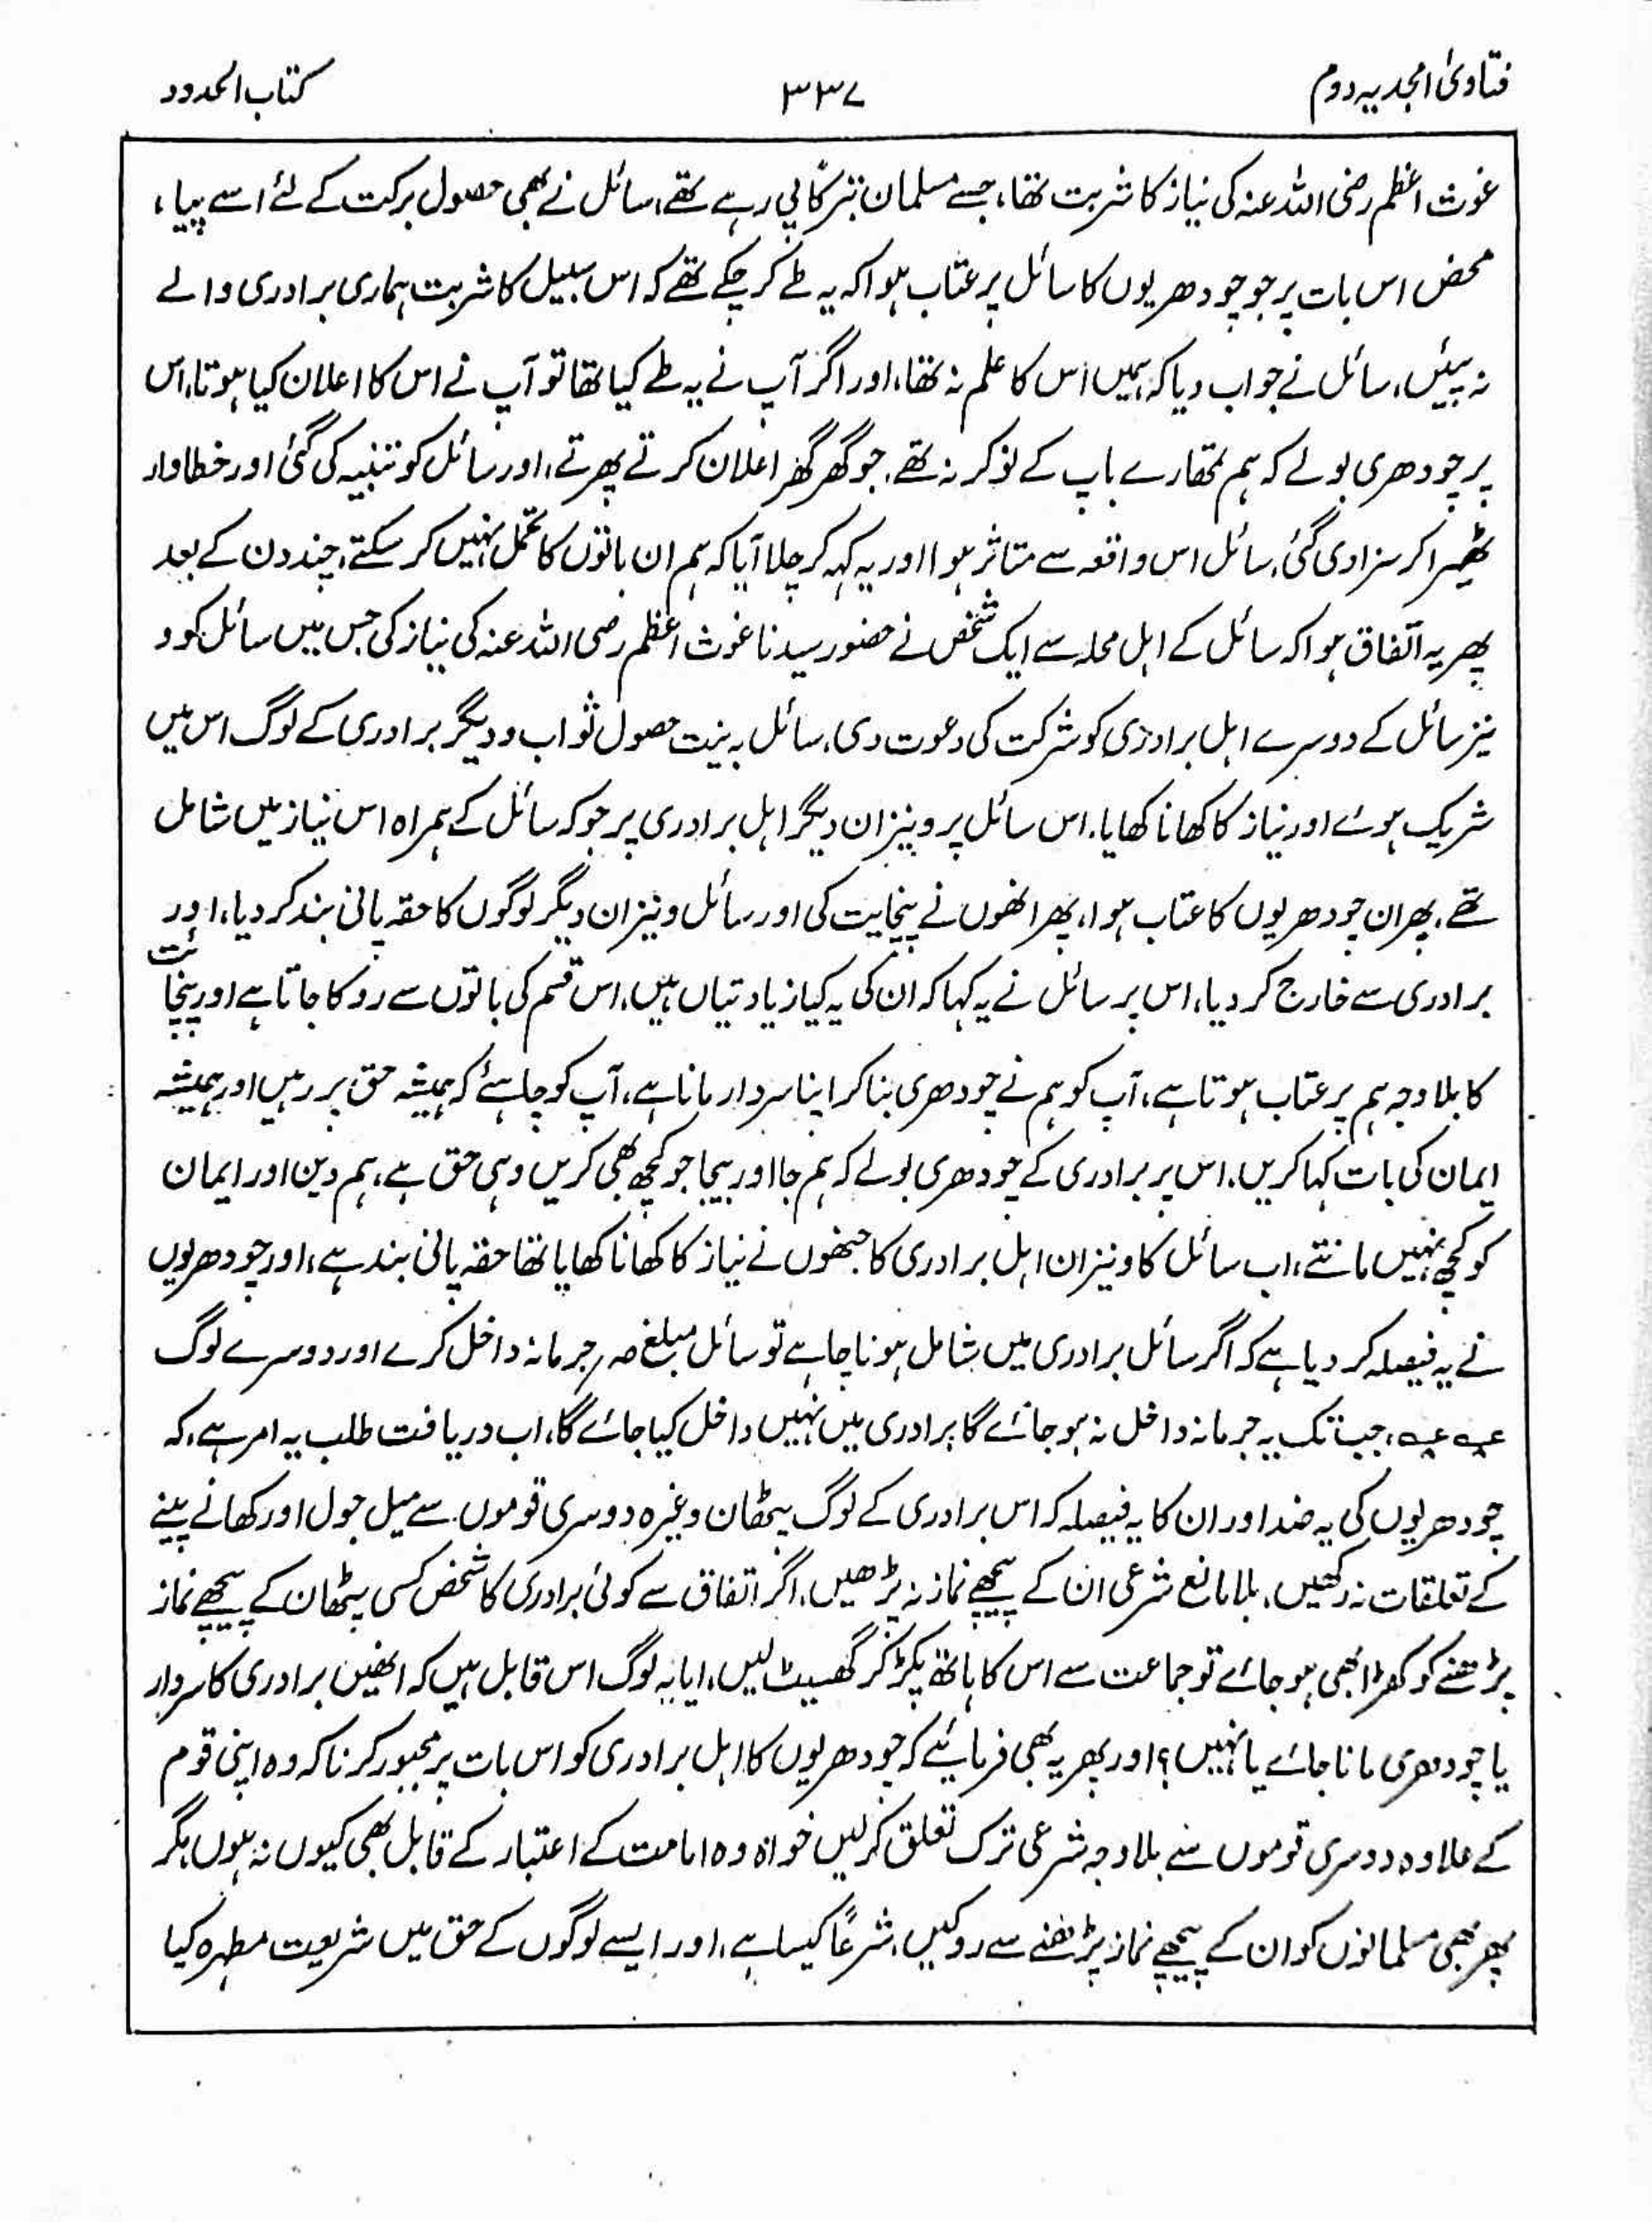 فتاویٰ امجدیہ دوم
۳۳۷
کتاب الحدود
غوث اعظم رضی اللہ عنہ کی نیاز کا شربت تھا، جسے مسلمان تبرکاً پی رہے تھے، سائل نے بھی حصول برکت کے لئے اسے پیا،
محض اس بات پر جو چودھریوں کا سائل پر عتاب ہوا کہ یہ طے کر چکے تھے کہ اس سبیل کا شربت ہماری برادری والے
نہ پیئں، سائل نے جواب دیا کہ ہمیں اس کا علم نہ تھا، اور اگر آپ نے یہ طے کیا تھا تو آپ نے اس کا اعلان کیا ہوتا، اس
پر چودھری بولے کہ ہم تمھارے باپ کے نوکر نہ تھے. جو گھر گھر اعلان کرتے پھرتے، اور سائل کو تنبیہ کی گئی اور خطاوار
ٹھہرا کر سزا دی گئی، سائل اس واقعہ سے متاثر ہوا اور یہ کہہ کر چلا آیا کہ ہم ان باتوں کا تحمل نہیں کر سکتے، چند دن کے بعد
پھر یہ اتفاق ہوا کہ سائل کے اہل محلہ سے ایک شخص نے حضور سیدنا غوث اعظم رضی اللہ عنہ کی نیاز کی جس میں سائل کو و
نیز سائل کے دوسرے اہل برادری کو شرکت کی دعوت دی، سائل بہ نیت حصول ثواب و دیگر برادری کے لوگ اس میں
شریک ہوئے اور نیاز کا کھانا کھایا. اس سائل پر و نیز ان دیگر اہل برادری پر جو کہ سائل کے ہمراہ اس نیاز میں شامل
تھے. پھر ان چودھریوں کا عتاب ہوا، پھر انھوں نے پنچایت کی اور سائل و نیز ان دیگر لوگوں کا حقہ پانی بند کر دیا، اور
برادری سے خارج کر دیا، اس پر سائل نے یہ کہا کہ ان کی یہ کیا زیادتیاں ہیں، اس قسم کی باتوں سے روکا جاتا ہے اور پنچائت
کا بلا وجہ ہم پر عتاب ہوتا ہے، آپ کو ہم نے چودھری بنا کر اپنا سردار مانا ہے، آپ کو چاہئے کہ ہمیشہ حق پر رہیں اور ہمیشہ
ایمان کی بات کہا کریں. اس پر برادری کے چودھری بولے کہ ہم جا اور بیجا جو کچھ بھی کریں وہی حق ہے، ہم دین اور ایمان
کو کچھ نہیں مانتے، اب سائل کا و نیز ان اہل برادری کا جنھوں نے نیاز کا کھانا کھایا تھا حقہ پانی بند ہے، اور چودھریوں
نے یہ فیصلہ کر دیا ہے کہ اگر سائل برادری میں شامل ہونا چاہے تو سائل مبلغ جرمانہ داخل کرے اور دوسرے لوگ
جب تک یہ جرمانہ داخل نہ ہو جائے گا برادری میں نہیں داخل کیا جائے گا، اب دریافت طلب یہ امر ہے، کہ
چودھریوں کی یہ ضد اور ان کا یہ فیصلہ کہ اس برادری کے لوگ پٹھان وغیرہ دوسری قوموں سے میل جول اور کھانے پینے
کے تعلقات نہ رکھیں، بلا مانع شرعی ان کے پیچھے نماز نہ پڑھیں، اگر اتفاق سے کوئی برادری کا شخص کسی پٹھان کے پیچھے نماز
پڑھنے کو کھڑا بھی ہو جائے تو جماعت سے اس کا ہاتھ پکڑ کر گھسیٹ لیں، ایا یہ لوگ اس قابل ہیں کہ انھیں برادری کا سردار
یا چودھری مانا جائے یا نہیں؟ اور پھر یہ بھی فرمائیے کہ چودھریوں کا اہل برادری کو اس بات پر مجبور کرنا کہ وہ اپنی قوم
کے علاوہ دوسری قوموں سے بلا وجہ شرعی ترک تعلق کر لیں خواہ وہ امامت کے اعتبار کے قابل بھی کیوں نہ ہوں، مگر
پھر بھی مسلمانوں کو ان کے پیچھے نماز پڑھنے سے روکیں، شرعاً کیسا ہے، اور ایسے لوگوں کے حق میں شریعت مطہرہ کیا